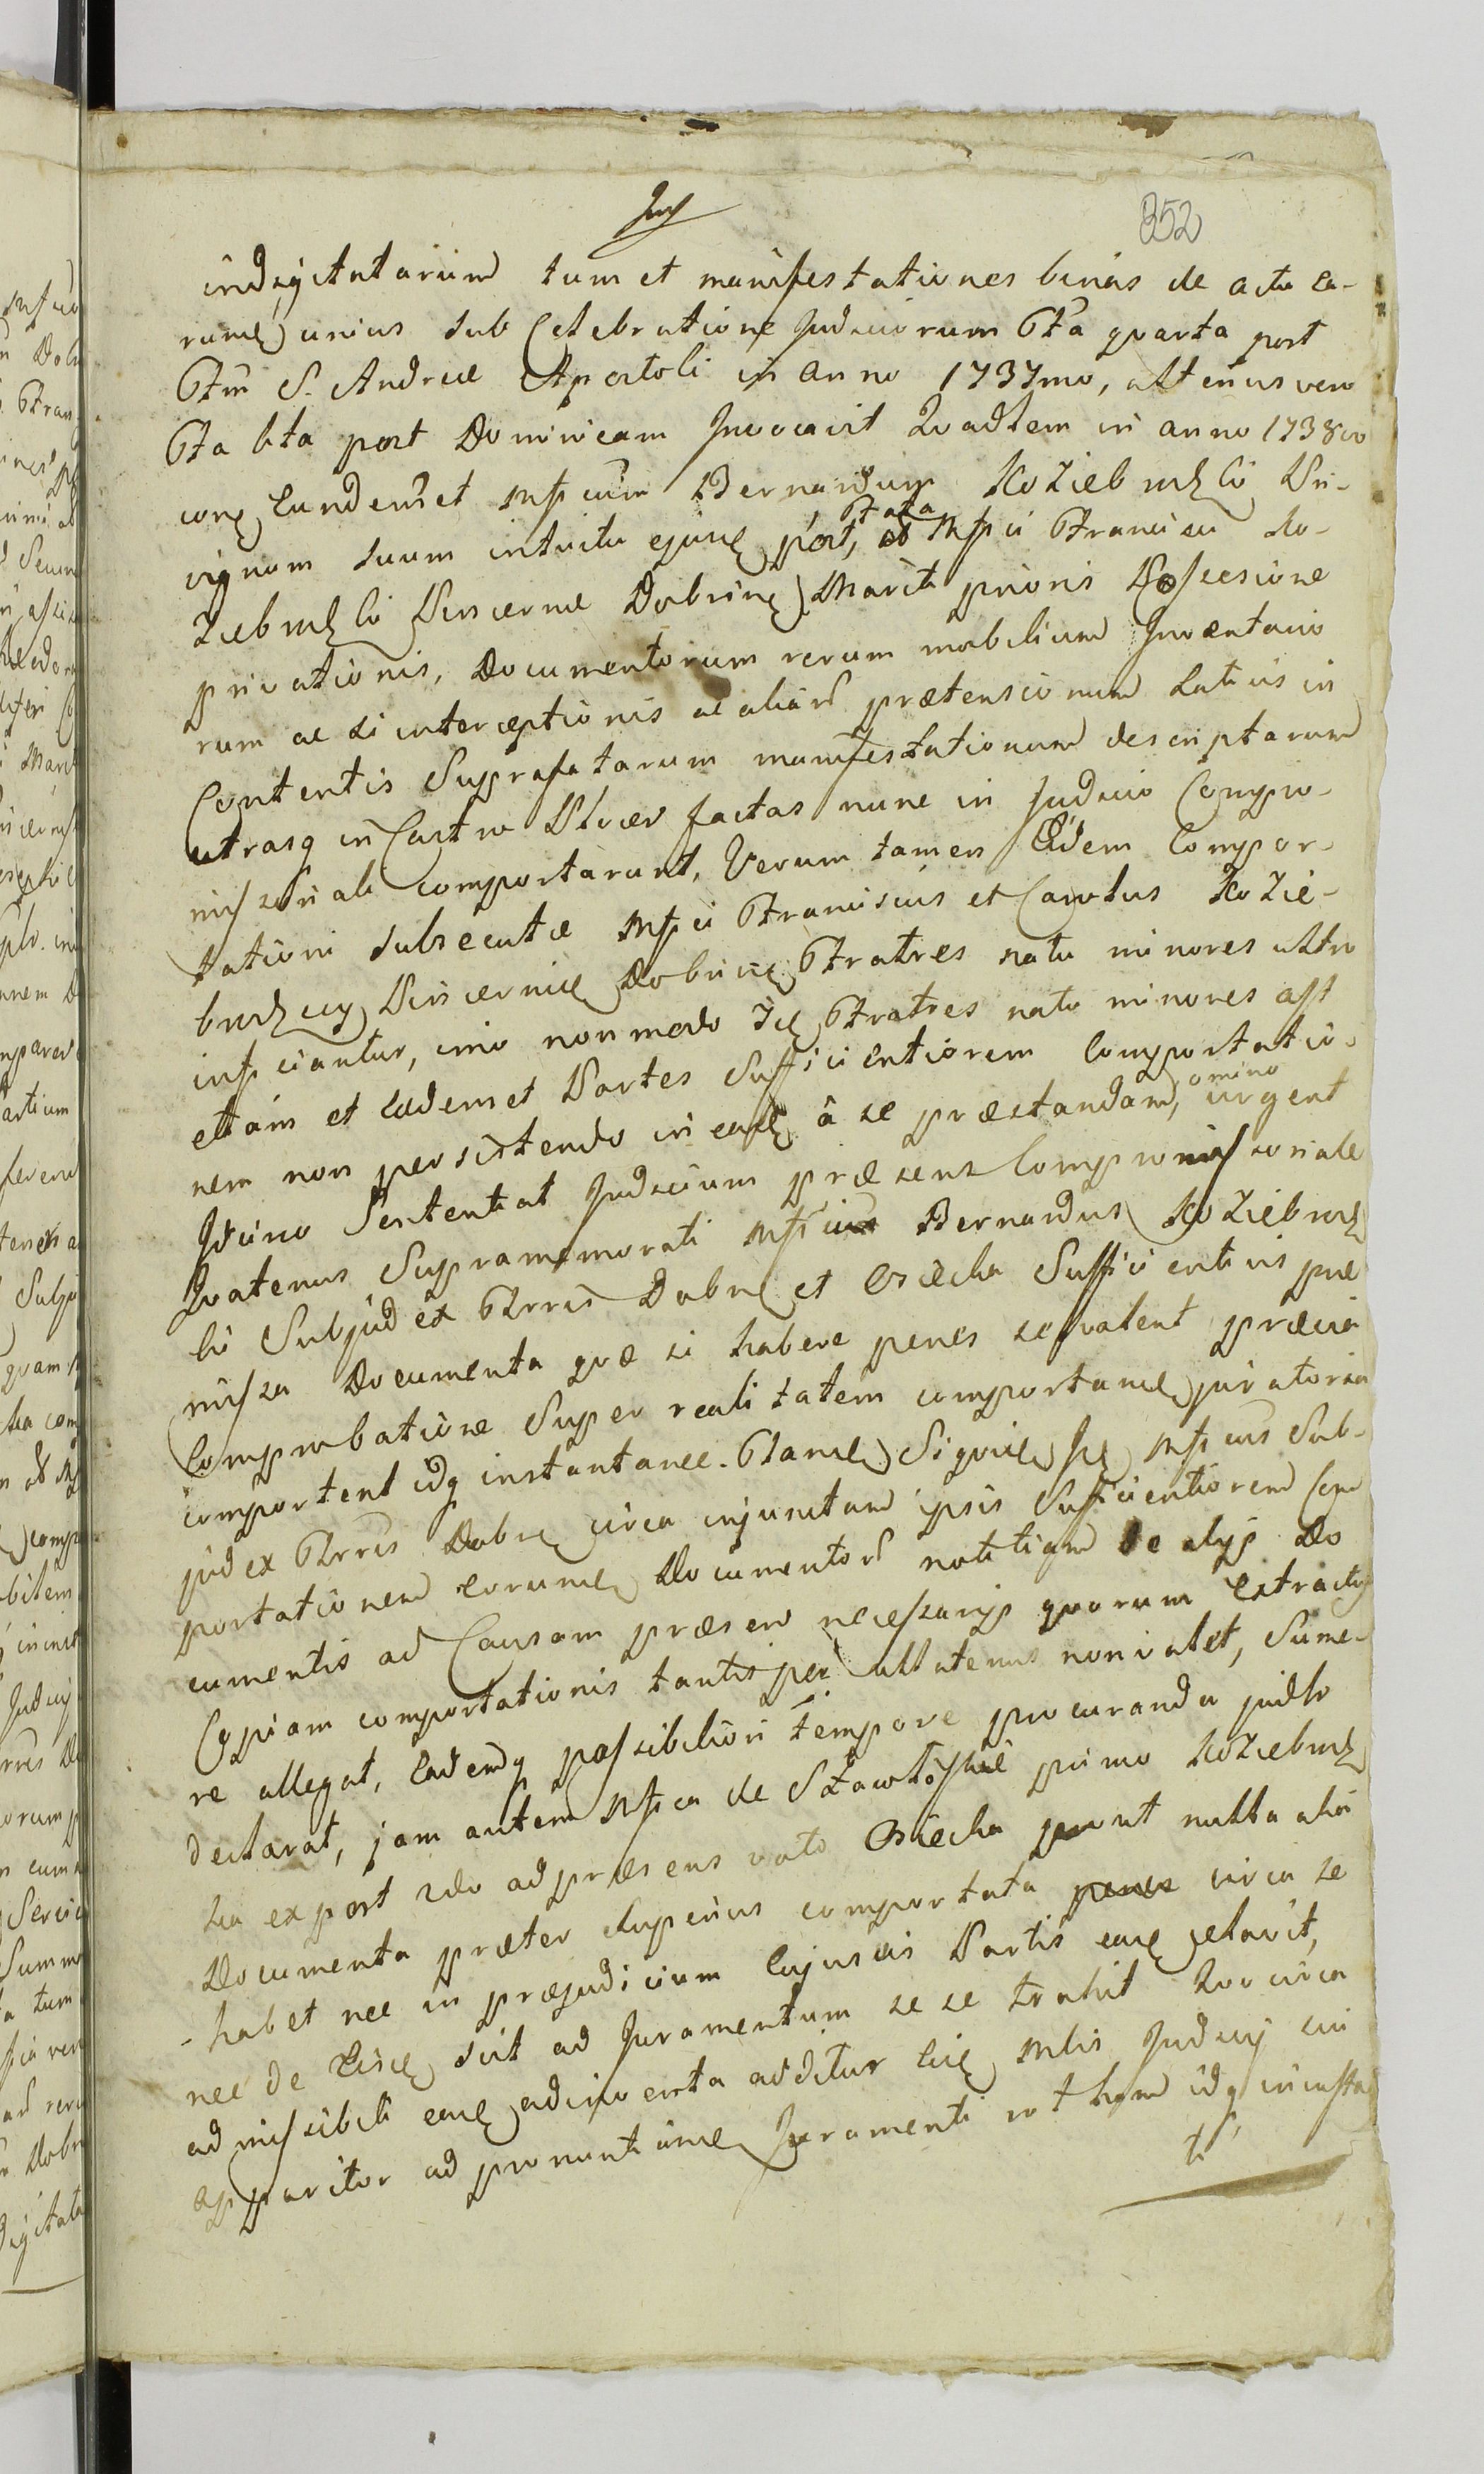 352
indigitatarum tum et manifestationes binas de actu ea-
rum unius sub Celebratione Judiciorum Fr̃a quarta post
Ftm̃ S. Andreæ Apostoli in anno 1737mo, alterius vero
Fr̃a 6ta post Dominicam Invocavit Quadlem in anno 1738vo
eundemet Mfcum Bernardum Koziebrodzki Pri-
vignum suum intuitu post, ab Mfci Francisci Ko-
ziebrodzki Pincernæ Dobrin Mariti prioris Possesione
privationis, Documentorum rerum mobilium Inventario
rum ac interceptionis ac aliar̃ prætensionum latius in
Contentis Suprafatarum manifestationum descriptarum
utrasq in Castro Plocen factas nunc in Judicio Compro-
missoriali comportarunt, Verum tamen Eidem Compor-
tationi subsecutæ Mfci Franciscus et Carolus Kozie-
brodzccy Pincernicæ Dobrin Fratres natu minores ultro
inficiantur, imo non modo Fratres nato minores ast
etiam et eædemet Partes Sufficientiorem Comportatio-
nem non persistendo in ea â se præstandam, omino urgent
Ideirco Sententiat Judicium præsens Compromissoriale
Quatenus Supramemorati Mfcus Bernardus Koziebrodz
ki Subjudex Trris Dobrn et Osiecka Sufficientius præ
missa Documenta quæ si habere penes se valent prævia
Comprobatione Super realitatem comportan juratoria
comportent idq instantanee. Siqui Mfcus Sub-
judex Trris Dobrn circa injunctam ipsis Sufficientiorem Com
portationem eorum Documentor̃ notitiam de alys Do
cumentis ad Causam præsen necessarys quorum Extractu
Copiam comportationis tantisper allatenus non valet, Sume-
re allegat, Eademq possibiliori tempore procuranda
declarat, jam autem Mfca de primo Koziebrodz
ka expost 2do ad præsens voto Osiecka prout nulla alia
Documenta præter Superius comportata circa se
habet nec in præjudicium Cujusvis Partis ea celavit,
nec de scit ad Juramentum sese trahit Quo circa
admissibili ea adinventa additur Mlis Judicij
apparitor ad pronuntian Juramenti rotham idq